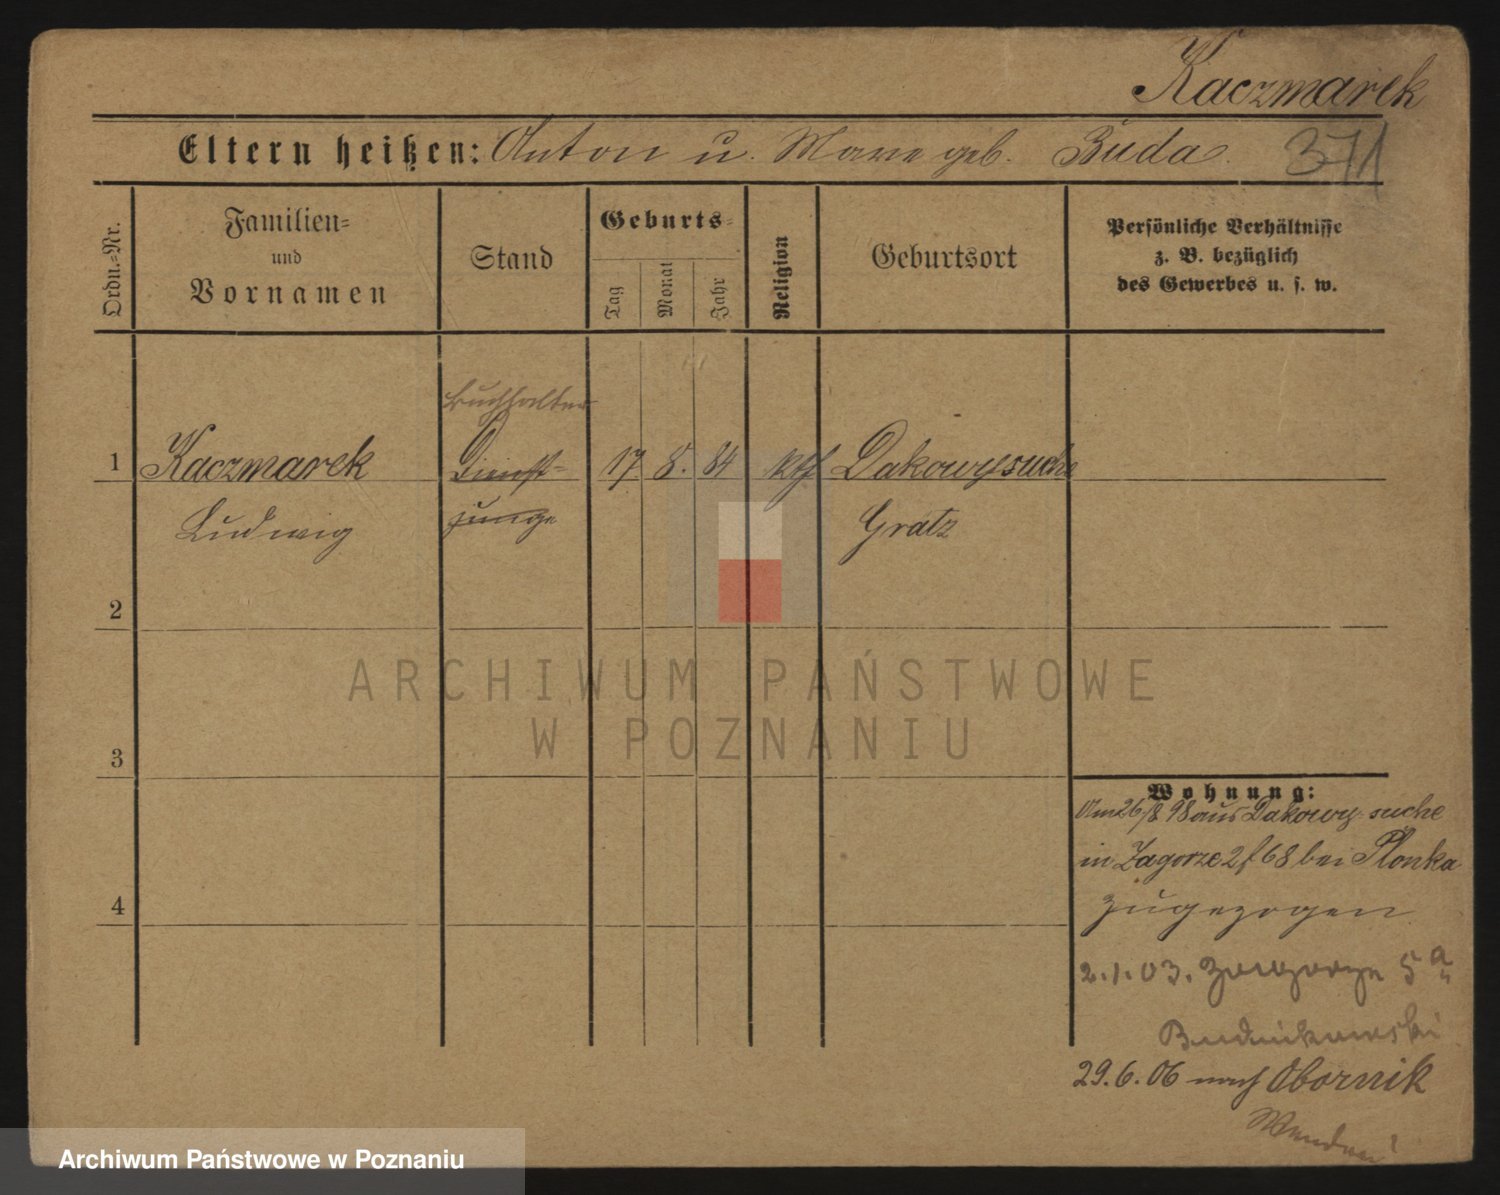 Kaczmarek
Eltern heißen: Anton u. Marie geb. Buda.
371
Ordn.=Nr.
Familien=
und
Vornamen
Stand
Geburts=
Tag
Monat
Jahr
Religion
Geburtsort
Persönliche Verhältnisse
z. B. bezüglich
des Gewerbes u. s. w.
Buchhalter
1 Kaczmarek Dienst= 17 8. 84 kth Dakowysuche
Ludwig junge Grätz
2
3
4
Wohnung:
Am 26/8 98 aus Dakowy suche
in Zagorze 2 f 68 bei Plonka
zugezogen
2.1.03. Zagorze 5a
Budnikowski
29.6.06 nach Obornik
ARCHIWUM PAŃSTWOWE
W POZNANIU
Archiwum Państwowe w Poznaniu